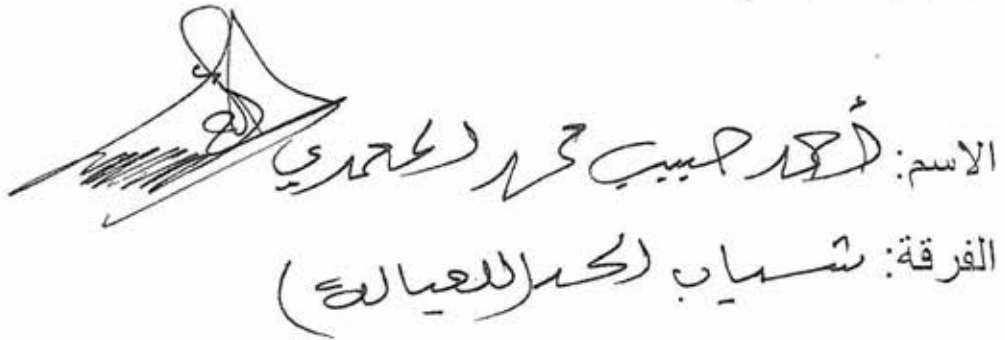 الاسم: أحمد حبيب محمد المحمدي
الفرقة: شباب الحد (للعيالة)